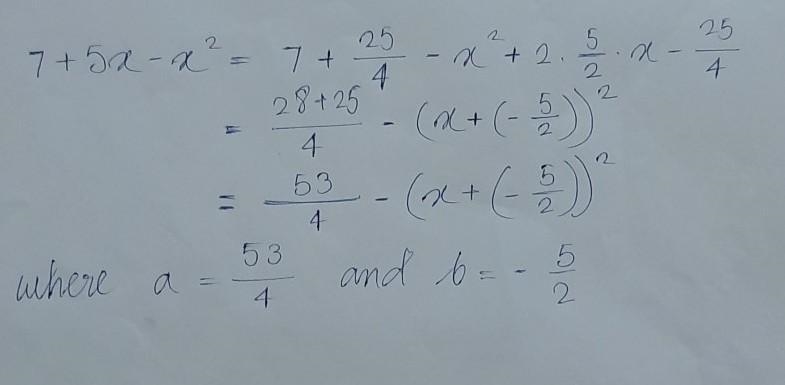 7 + 5x - x² = 7 + 25/4 - x² + 2 · 5/2 · x - 25/4
= (28+25)/4 - (x + (- 5/2))²
= 53/4 - (x + (- 5/2))²
where a = 53/4 and b = - 5/2